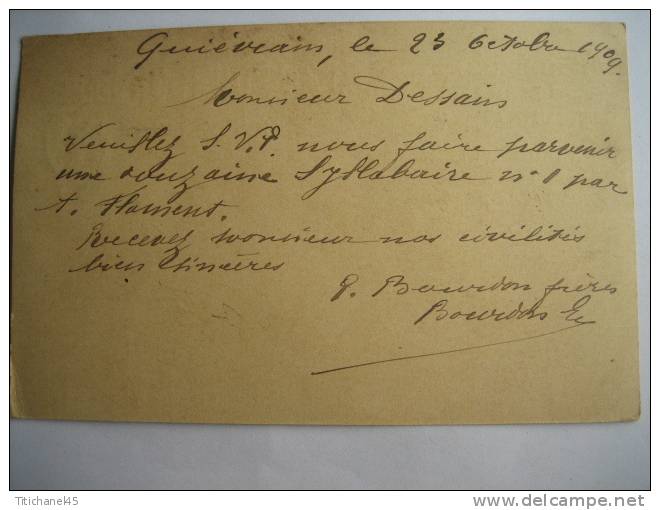 Quiévrain, le 23 Octobre 1909.
Monsieur Dessain
Veuillez S.V.P. nous faire parvenir
une douzaine Syllabaire n° 1 par
A. Flament.
Recevez monsieur nos civilités
bien sincères
Bourdon frères
Bourdon
Titichane45
delcampe.net